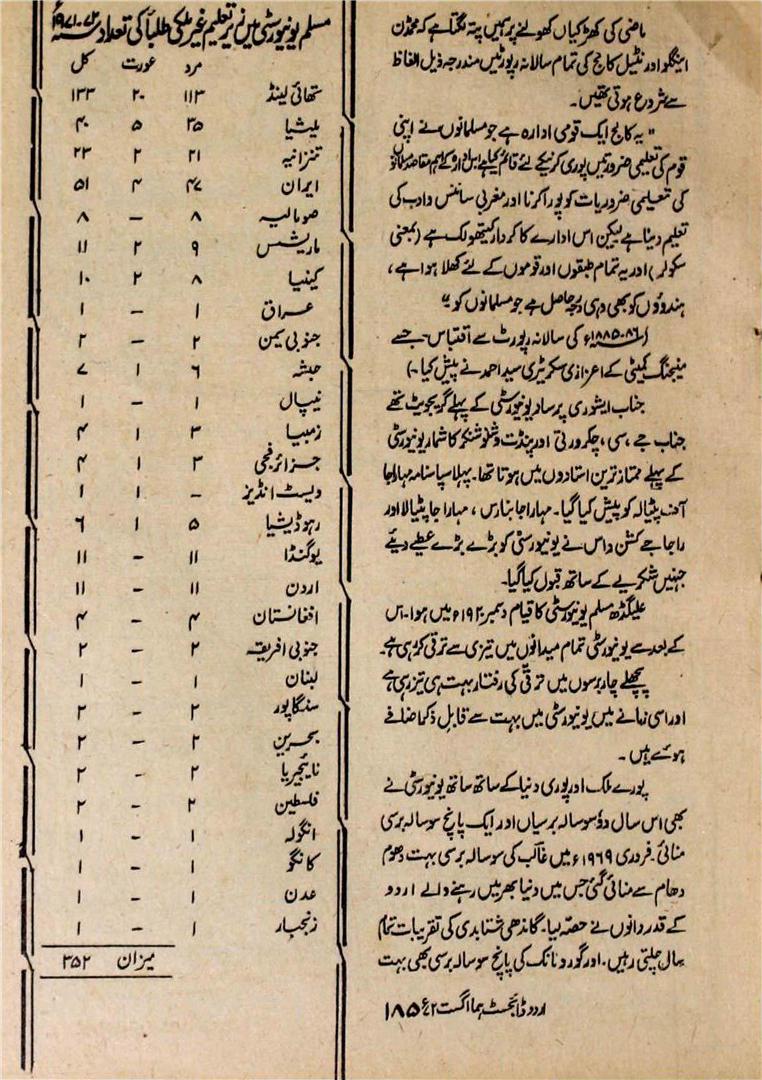 ماضی کی کھڑکیاں کھولنے پر ہمیں پتہ لگتا ہے کہ محمڈن
اینگلو اورنٹیل کالج کی تمام سالانہ رپورٹیں مندرجہ ذیل الفاظ
سے شروع ہوتی تھیں۔
"یہ کالج ایک قومی ادارہ ہے جو مسلمانوں نے اپنی
قوم کی تعلیمی ضرورتیں پوری کرنیکے لئے قائم کیا ہے اس ادارہ کے اہم مقاصد مسلمانوں
کی تعلیمی ضروریات کو پورا کرنا اور مغربی سائنس و ادب کی
تعلیم دینا ہے لیکن اس ادارے کا کردار کیتھولک ہے (بمعنی
سکولر) اور یہ تمام طبقوں اور قوموں کے لئے کھلا ہوا ہے،
ہندوؤں کو بھی وہی درجہ حاصل ہے جو مسلمانوں کو"
(۸۶-۱۸۸۵ء کی سالانہ رپورٹ سے اقتباس جسے
منیجنگ کمیٹی کے اعزازی سکریٹری سید احمد نے پیش کیا۔)
جناب ایشوری پرساد یونیورسٹی کے پہلے گریجویٹ تھے
جناب جے، سی، چکرورتی اور پنڈت وشنو شنکر کا شمار یونیورسٹی
کے پہلے ممتاز ترین استادوں میں ہوتا تھا۔ پہلا سپاسنامہ مہاراجا
آف پٹیالہ کو پیش کیا گیا۔ مہاراجا بنارس، مہاراجا پٹیالا اور
راجا جے کشن داس نے یونیورسٹی کو بڑے بڑے عطیے دیئے
جنہیں شکریے کے ساتھ قبول کیا گیا۔
علیگڈھ مسلم یونیورسٹی کا قیام دسمبر ۱۹۲۰ء میں ہوا۔ اس
کے بعد سے یونیورسٹی تمام میدانوں میں تیزی سے ترقی کر رہی ہے۔
پچھلے چار برسوں میں ترقی کی رفتار بہت ہی تیز رہی ہے
اور اسی زمانے میں یونیورسٹی میں بہت سے قابل ذکر اضافے
ہوئے ہیں۔
پورے ملک اور پوری دنیا کے ساتھ ساتھ یونیورسٹی نے
بھی اس سال دو سو سالہ برسیاں اور ایک پانچ سو سالہ برسی
منائی۔ فروری ۱۹۶۹ء میں غالب کی سو سالہ برسی بہت دھوم
دھام سے منائی گئی جس میں دنیا بھر میں رہنے والے اردو
کے قدردانوں نے حصہ لیا۔ گاندھی شتابدی کی تقریبات تمام
سال چلتی رہیں۔ اور گورو نانک کی پانچ سو سالہ برسی بھی بہت
مسلم یونیورسٹی میں زیر تعلیم غیر ملکی طلباء کی تعداد ۷۲-۱۹۷۱ء
مرد عورت کل
تھائی لینڈ ۱۱۳ ۲۰ ۱۳۳
ملیشیا ۳۵ ۵ ۴۰
تنزانیہ ۲۱ ۲ ۲۳
ایران ۴۷ ۴ ۵۱
صومالیہ ۸ - ۸
ماریشس ۹ ۲ ۱۱
کینیا ۸ ۲ ۱۰
عراق ۱ - ۱
جنوبی یمن ۲ - ۲
حبشہ ۶ ۱ ۷
نیپال ۱ - ۱
زمبیا ۳ ۱ ۴
جزائر فجی ۳ ۱ ۴
ویسٹ انڈیز - ۱ ۱
رہوڈیشیا ۵ ۱ ۶
یوگنڈا ۱۱ - ۱۱
اردن ۱۱ - ۱۱
افغانستان ۴ - ۴
جنوبی افریقہ ۲ - ۲
لبنان ۱ - ۱
سنگاپور ۲ - ۲
بحرین ۲ - ۲
نائجیریا ۲ - ۲
فلسطین ۲ - ۲
انگولہ ۱ - ۱
کانگو ۱ - ۱
عدن ۱ - ۱
زنجبار ۱ - ۱
میزان ۳۵۲
اردو ڈائجسٹ ہما اگست ۷۲ء ۱۸۵